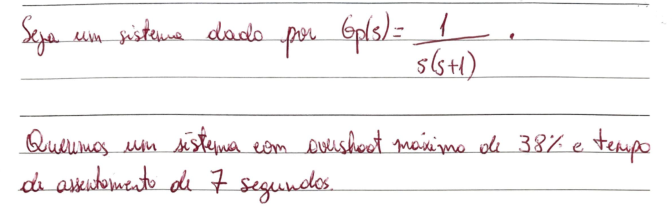 Seja um sistema dado por Gp(s) = 1 / s(s+1) .
Queremos um sistema com overshoot máximo de 38% e tempo
de assentamento de 7 segundos.